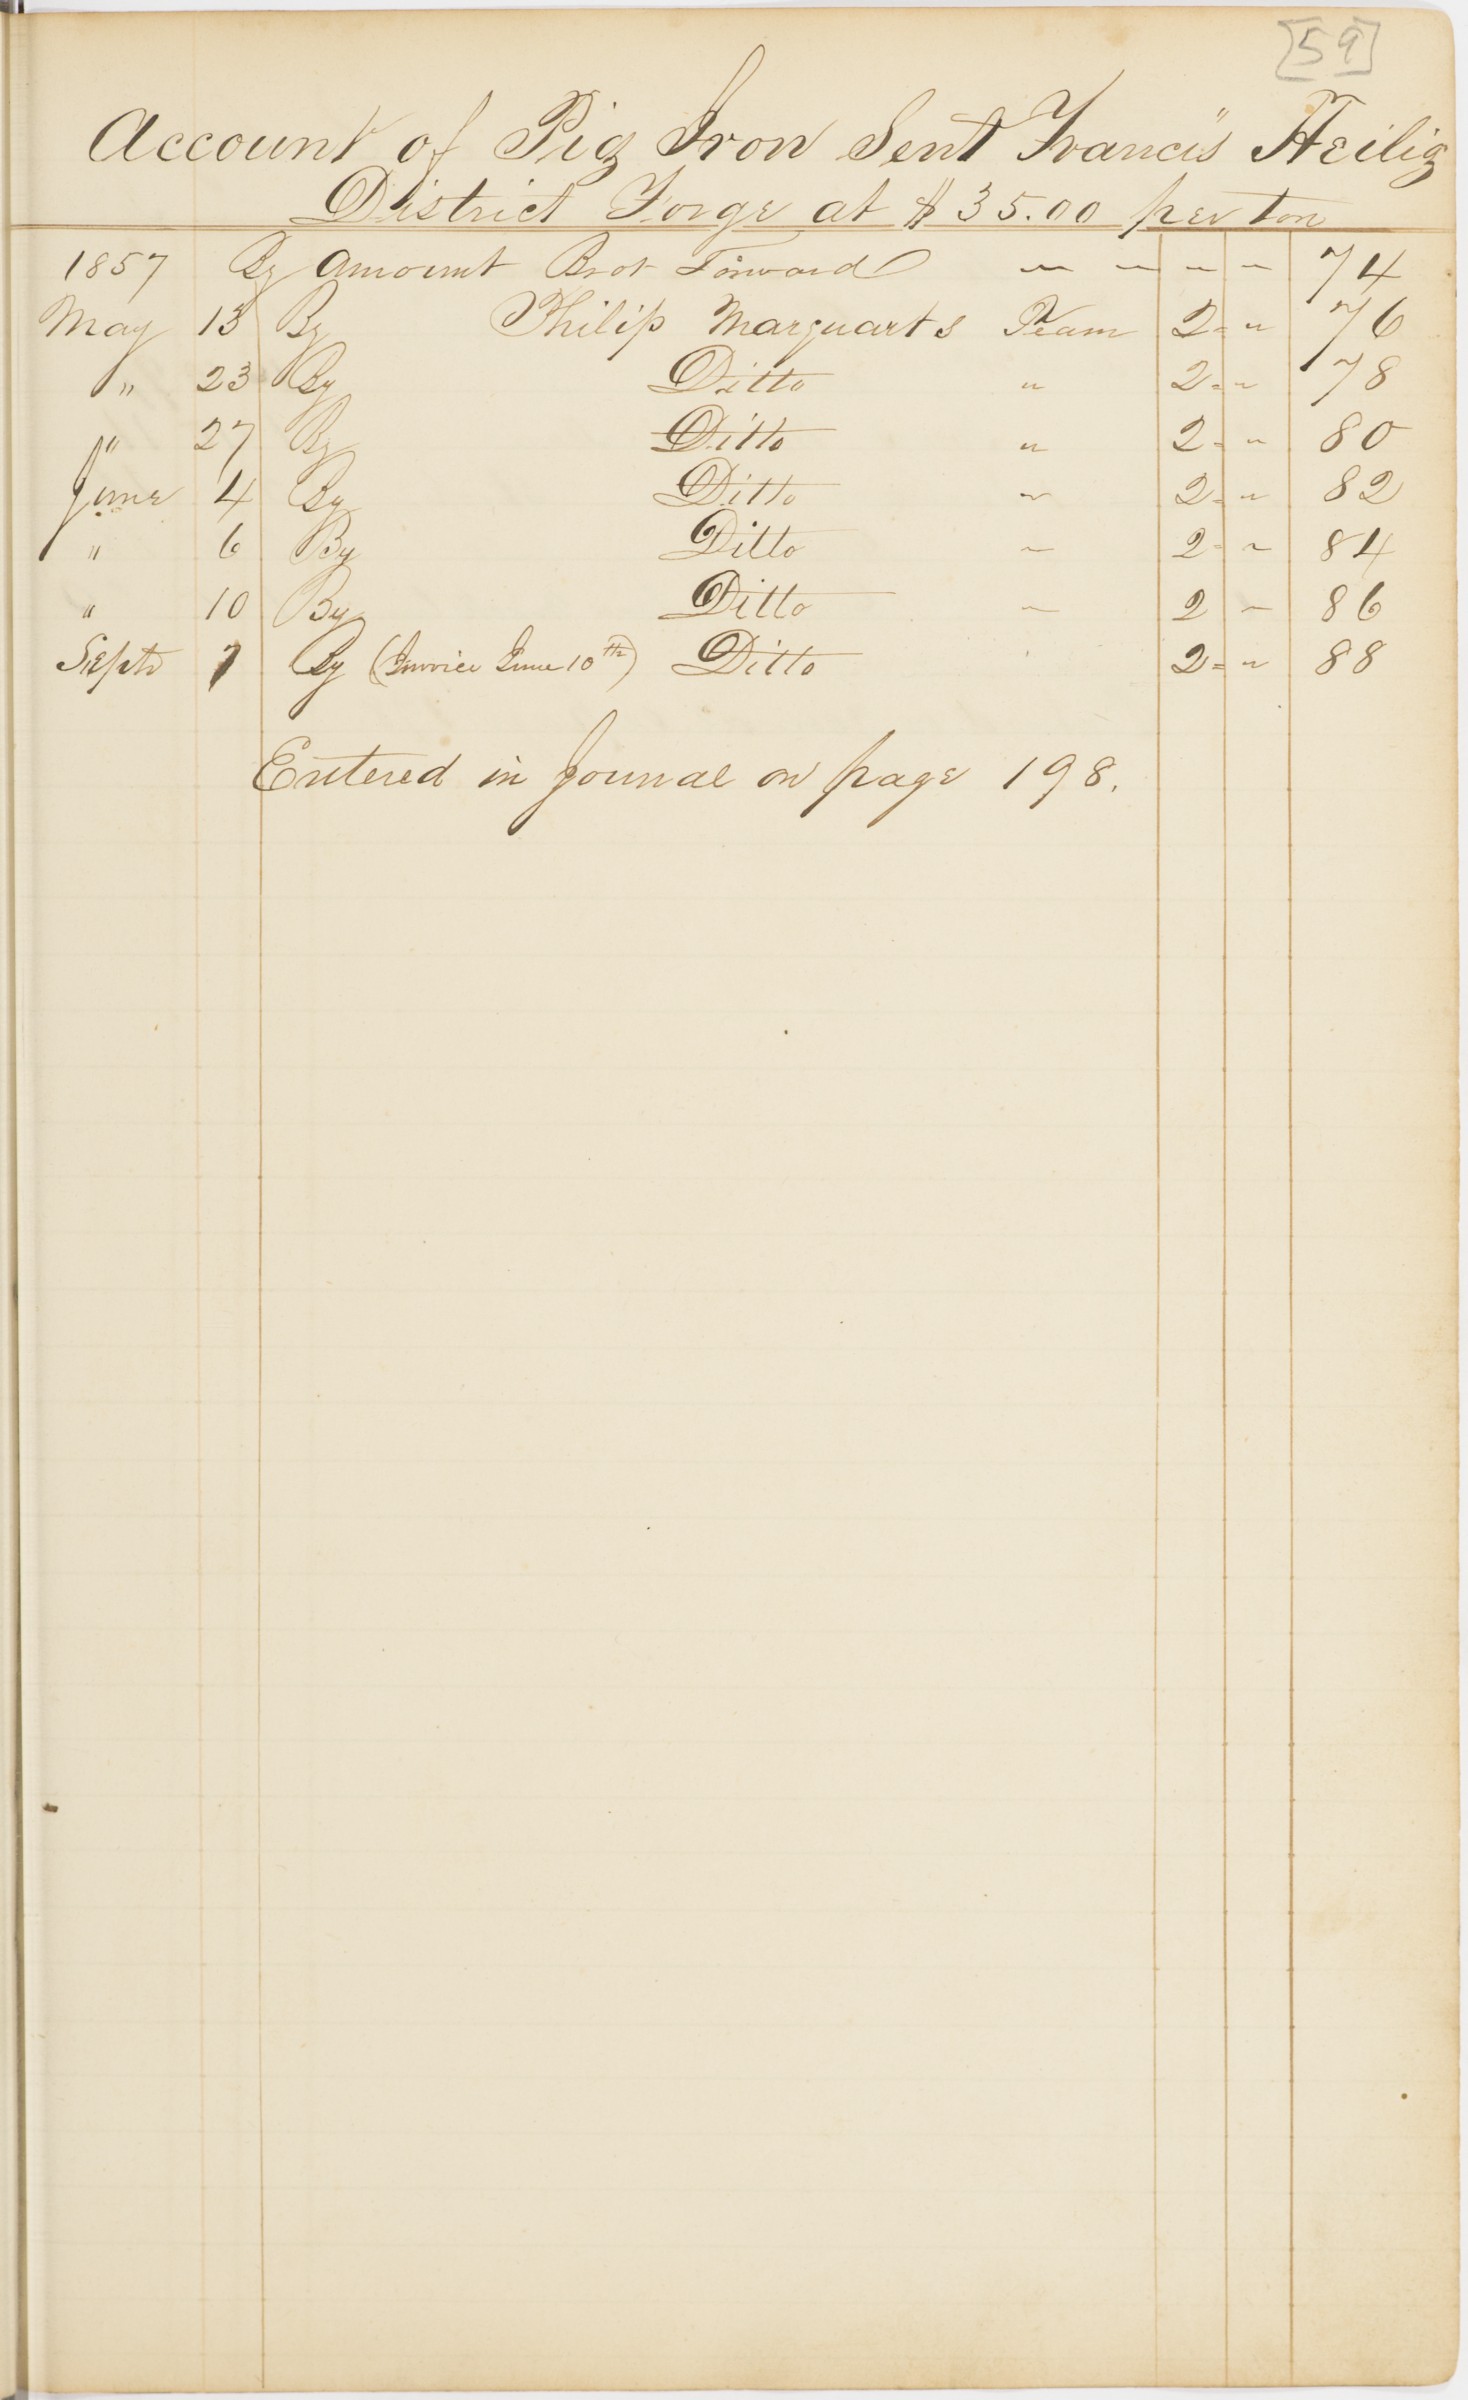 [59]
Account of Pig Iron Sent Francis Heilig
District Forge at $35.00 per ton
1857 By Amount Brot Forward " " " " 74
May 13 By Philip Marquarts Team 2 - " 76
" 23 By Ditto " 2 - " 78
" 27 By Ditto " 2 - " 80
June 4 By Ditto " 2 - " 82
" 6 By Ditto " 2 - " 84
" 10 By Ditto " 2 " 86
Septr 7 By (Invoice June 10th) Ditto 2 - " 88
Entered in Journal on page 198.